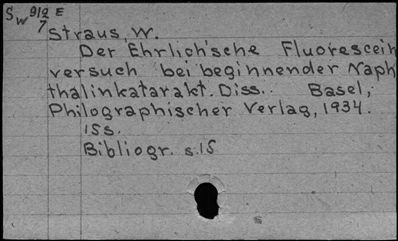 Sw 912 E
7
Straus, W.
Der Ehrlich'sche Fluorescein
versuch bei beginnender Naph
thalinkatarakt. Diss. Basel,
Philographischer Verlag, 1934.
15s.
Bibliogr. s.15